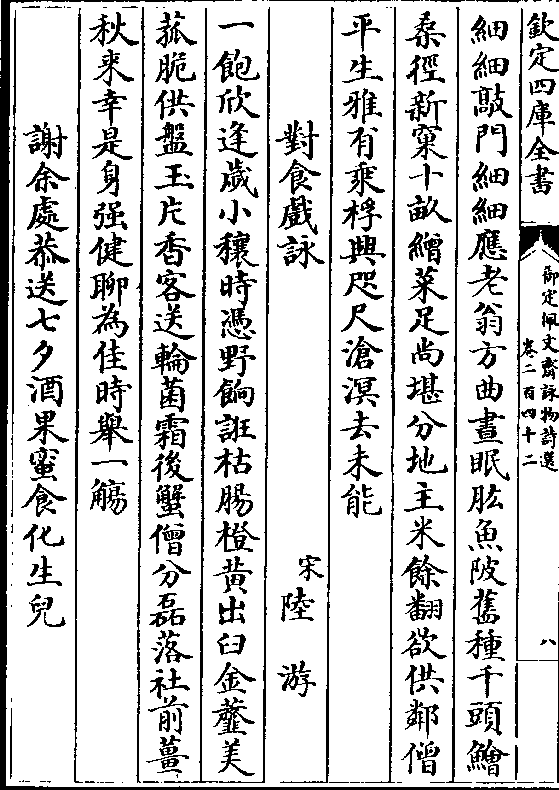 欽定四庫全書
御定佩文齋詠物詩選
卷二百四十二
八
細細敲門細細應老翁方曲晝眠肱魚陂舊種千頭鱠
桑徑新窠十畝繒菜足尚堪分地主米餘翻欲供鄰僧
平生雅有乘桴興咫尺滄溟去未能
對食戲詠
宋陸游
一飽欣逢歲小穰時憑野餉誑枯腸橙黄出臼金虀美
菰脆供盤玉片香客送輪菌霜後蟹僧分磊落社前薑
秋来幸是身强健聊為佳時舉一觴
謝余處恭送七夕酒果蜜食化生兒